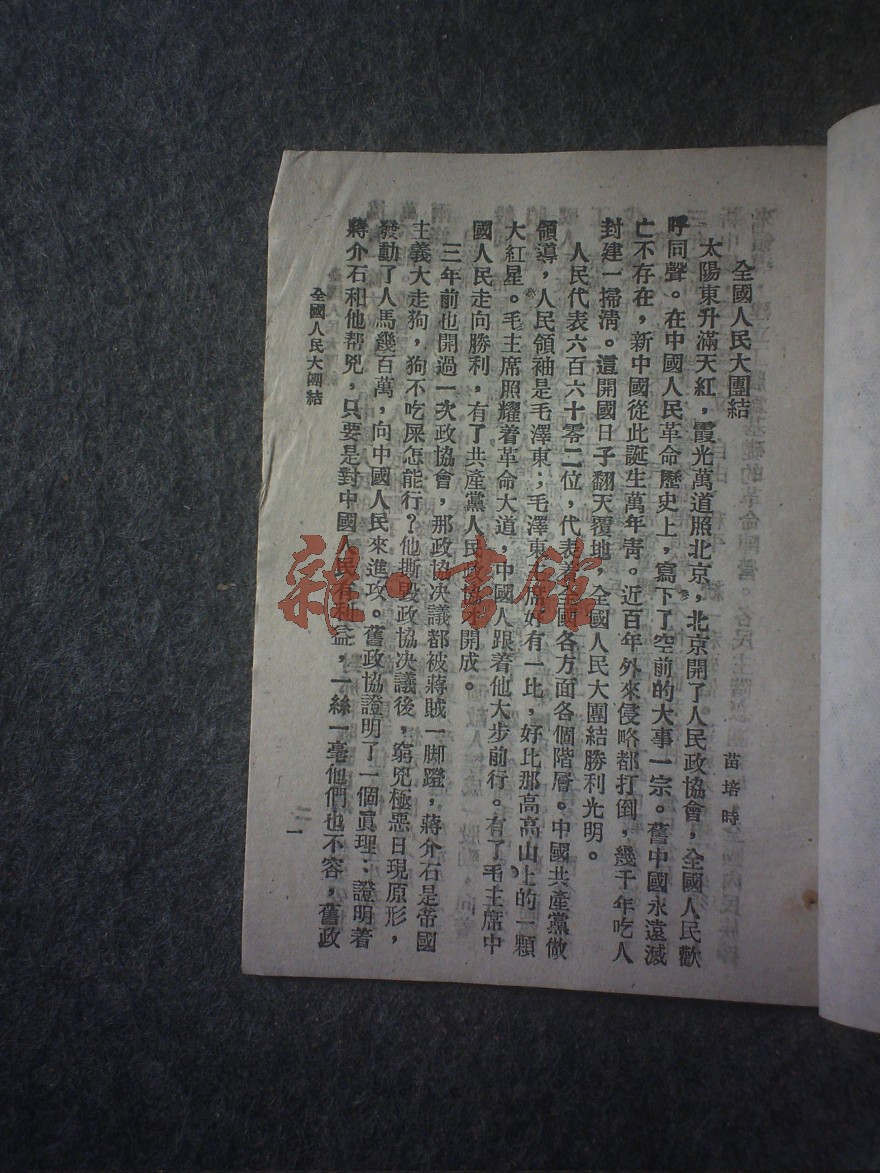 全國人民大團結
苗培時
太陽東升滿天紅，霞光萬道照北京，北京開了人民政協會，全國人民歡
呼同聲。在中國人民革命歷史上，寫下了空前的大事一宗。舊中國永遠滅
亡不存在，新中國從此誕生萬年青。近百年外來侵略都打倒，幾千年吃人
封建一掃清。這開國日子翻天覆地，全國人民大團結勝利光明。
人民代表六百六十零二位，代表着全國各方面各個階層。中國共產黨做
領導，人民領袖是毛澤東；毛澤東主席好有一比，好比那高高山上的一顆
大紅星。毛主席照耀着革命大道，中國人跟着他大步前行。有了毛主席中
國人民走向勝利，有了共產黨人民政協才開成。
三年前也開過一次政協會，那政協決議都被蔣賊一脚蹬，蔣介石是帝國
主義大走狗，狗不吃屎怎能行？他撕毀政協決議後，窮兇極惡日現原形，
發動了人馬幾百萬，向中國人民來進攻。舊政協證明了一個眞理：證明着
蔣介石和他帮兇，只要是對中國人民有利益，一絲一毫他們也不容，舊政
全國人民大團結
一
雜·書館